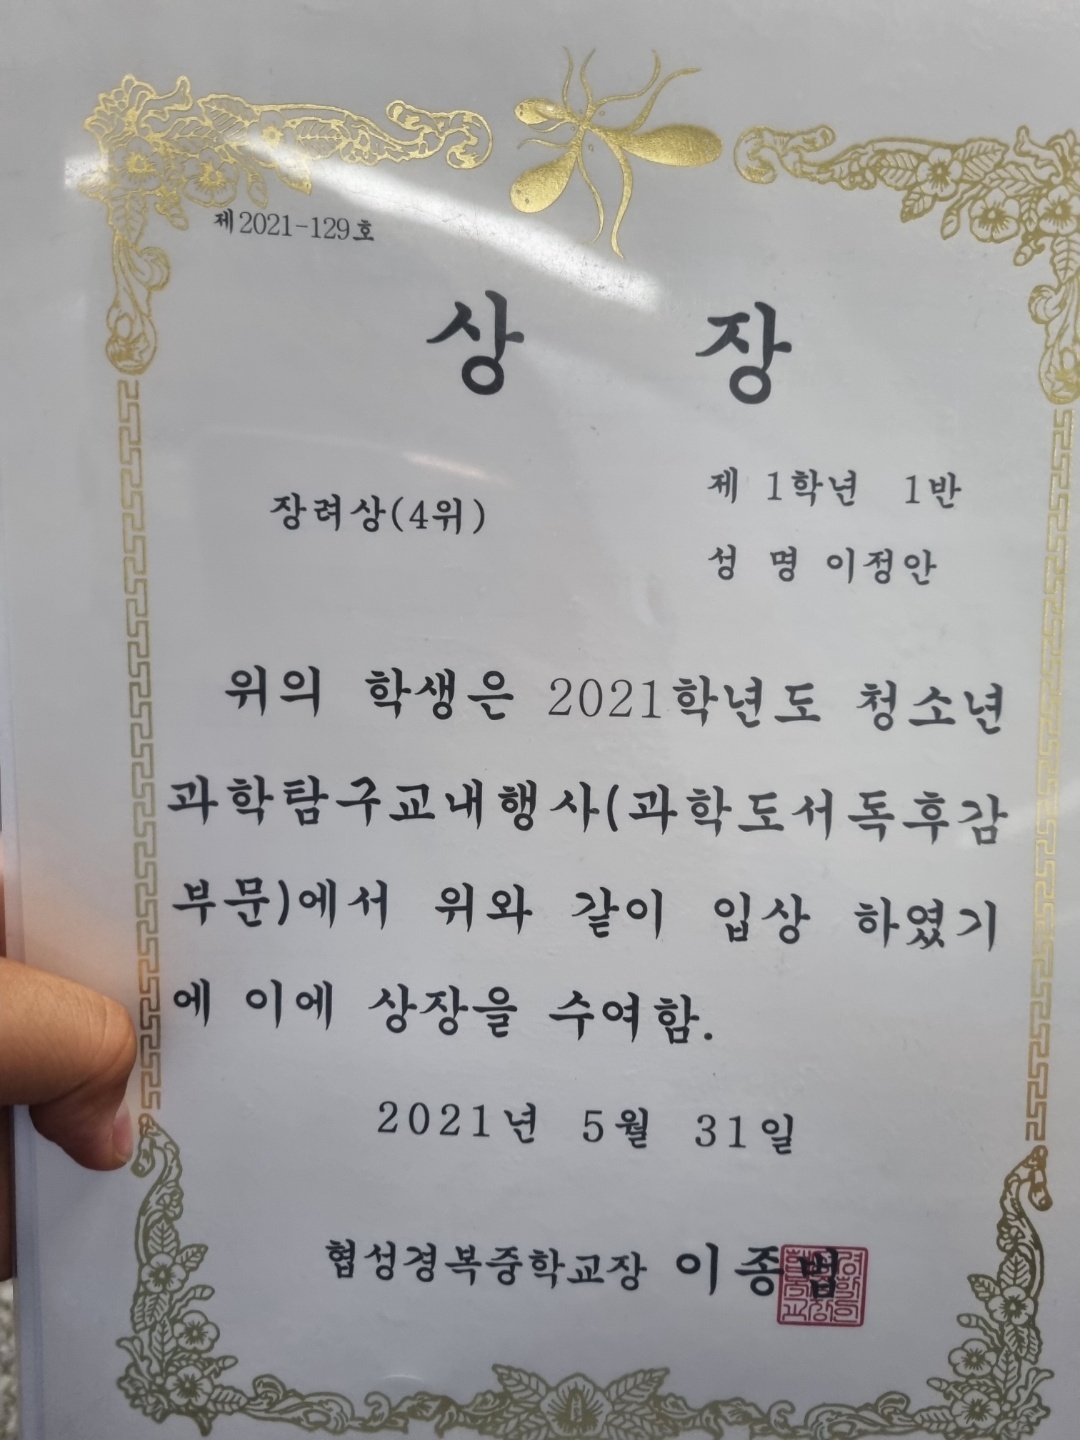 제2021-129호
상 장
장려상(4위)
제 1학년 1반
성 명 이정안
위의 학생은 2021학년도 청소년
과학탐구교내행사(과학도서독후감
부문)에서 위와 같이 입상 하였기
에 이에 상장을 수여함.
2021년 5월 31일
협성경복중학교장 이종법